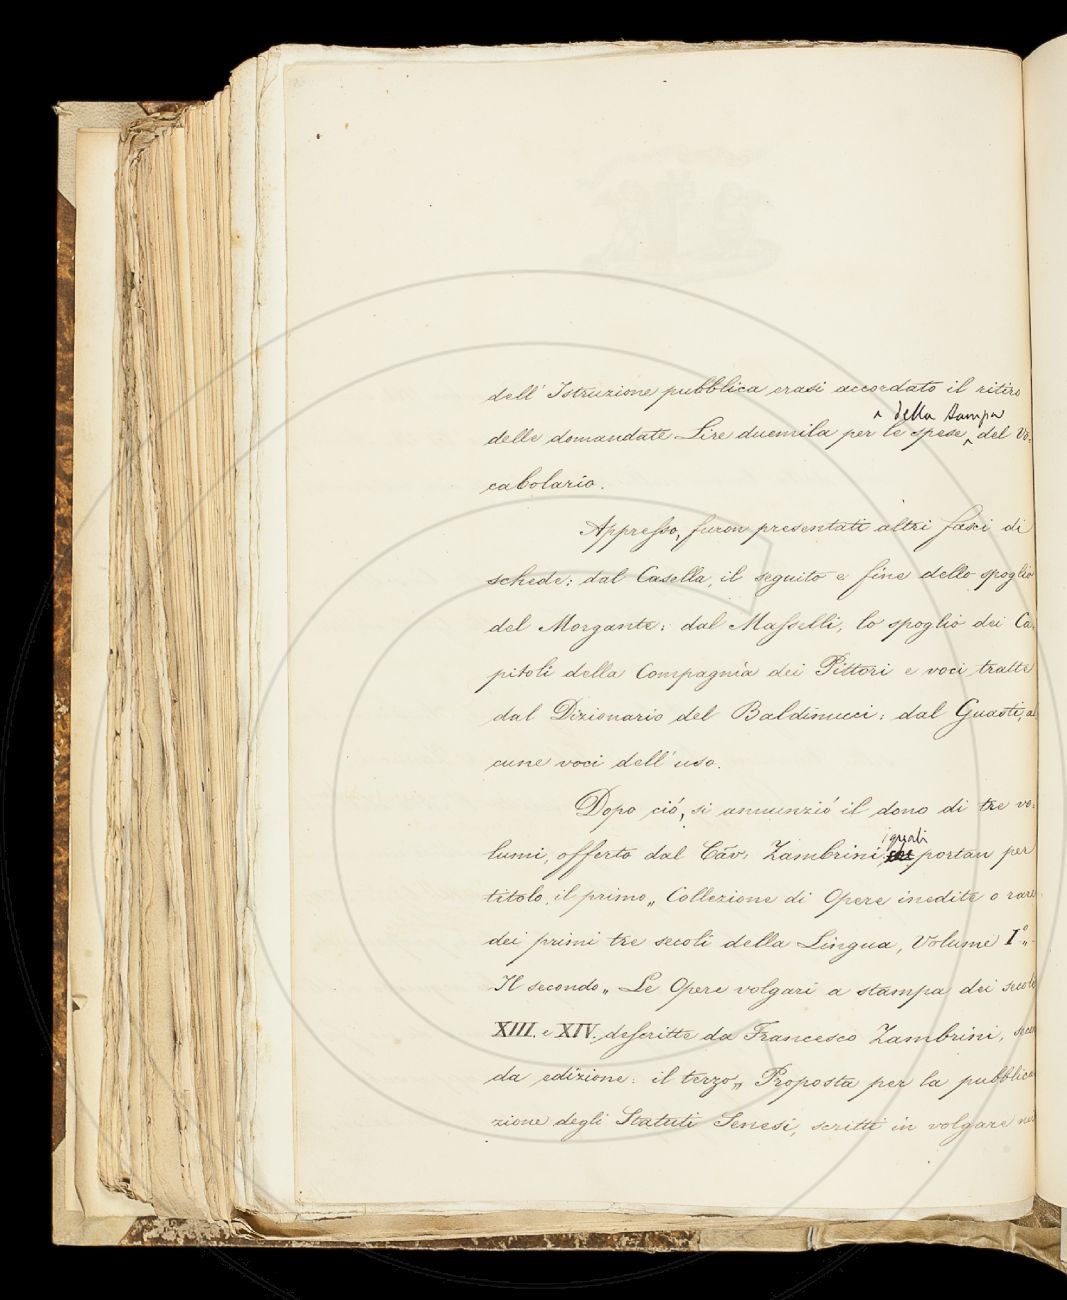 dell' Istruzione pubblica erasi accordato il ritiro
della stampa
delle domandate Lire duemila per le spese del Vo:
cabolario.
Appresso, furon presentati altri fasci di
schede: dal Casella, il seguito e fine dello spoglio
del Morgante: dal Masselli, lo spoglio dei Ca:
pitoli della Compagnia dei Pittori e voci tratte
dal Dizionario del Baldinucci: dal Guasti, al
cune voci dell' uso.
Dopo ciò, si annunziò il dono di tre vo:
i quali
lumi, offerto dal Cav: Zambrini, portan per
titolo, il primo „ Collezione di Opere inedite o rare
dei primi tre secoli della Lingua, Volume I.° „
Il secondo „ Le Opere volgari a stampa dei secoli
XIII. e XIV. descritte da Francesco Zambrini, secon
da edizione: il terzo „ Proposta per la pubblica
zione degli Statuti Senesi, scritti in volgare nei